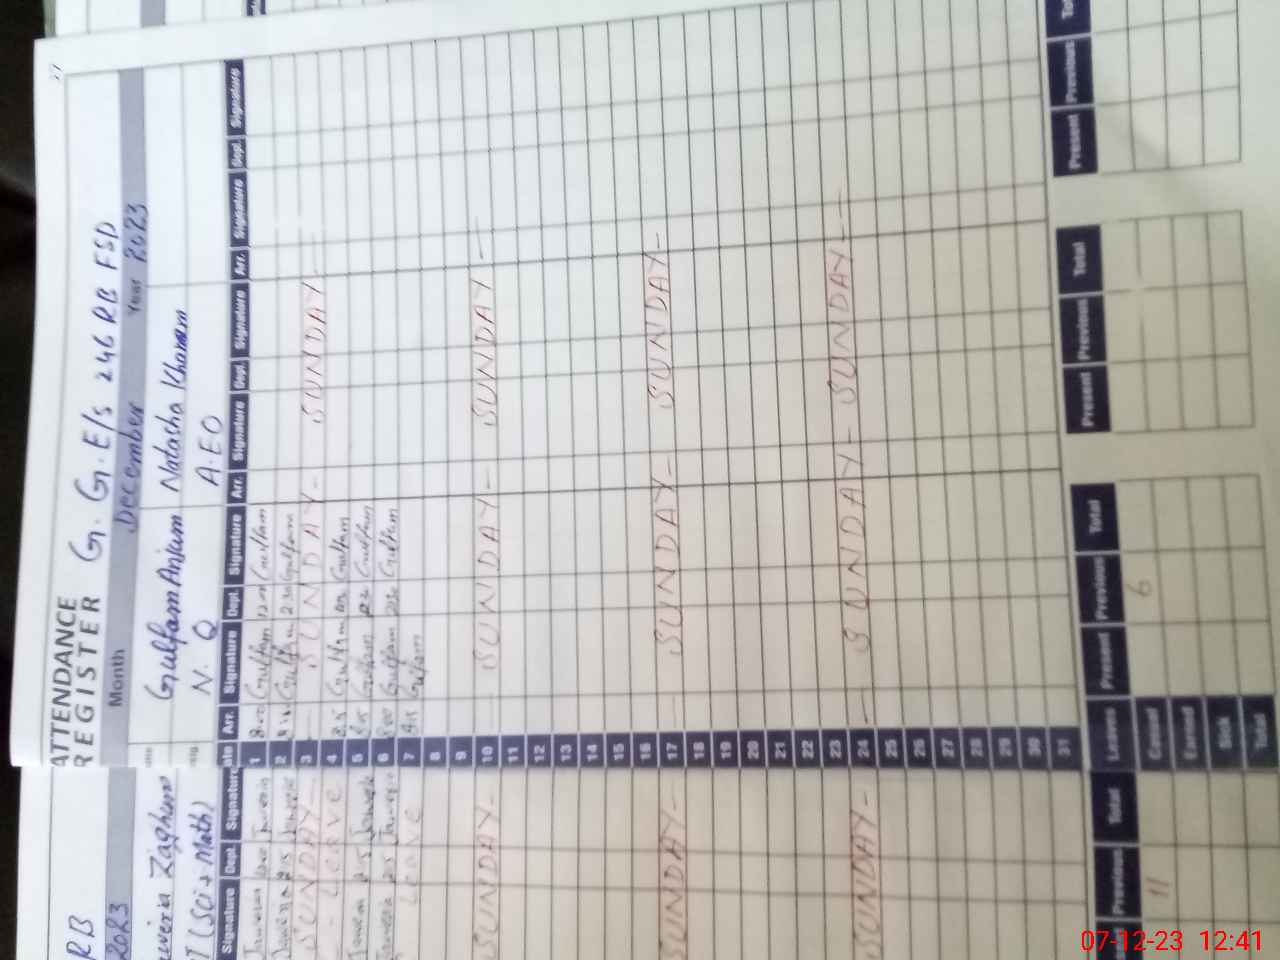 27
ATTENDANCE
REGISTER G. G.E/S 246 RB FSD
Month December Year 2023
Gulfam Anjum Natasha Khanam
N. Q A.EO
Date Arr. Signature Dept. Signature Arr. Signature Dept. Signature Arr. Signature Dept. Signature
1 8.00 Gulfam Gulfam
2 Gulfam 2.30 Gulfam
3 — SUNDAY — SUNDAY —
4 Gulfam Gulfam
5 Gulfam Gulfam
6 800 Gulfam 230 Gulfam
7 Gulfam
8
9
10 SUNDAY — SUNDAY —
11
12
13
14
15
16
17 — SUNDAY — SUNDAY —
18
19
20
21
22
23
24 — SUNDAY — SUNDAY —
25
26
27
28
29
30
31
Leaves Present Previous Total Present Previous Total Present Previous
Casual 6
Earned
Sick
Total
RB
2023
Zaghum
(Sci + Math)
Signature Dept. Signature
Javeria Javeria
Javeria 2.15 Javeria
SUNDAY —
- Leave
Javeria 2.15 Javeria
Javeria 2.15 Javeria
Leave
SUNDAY —
SUNDAY —
SUNDAY —
Previous Total
11
07-12-23 12:41